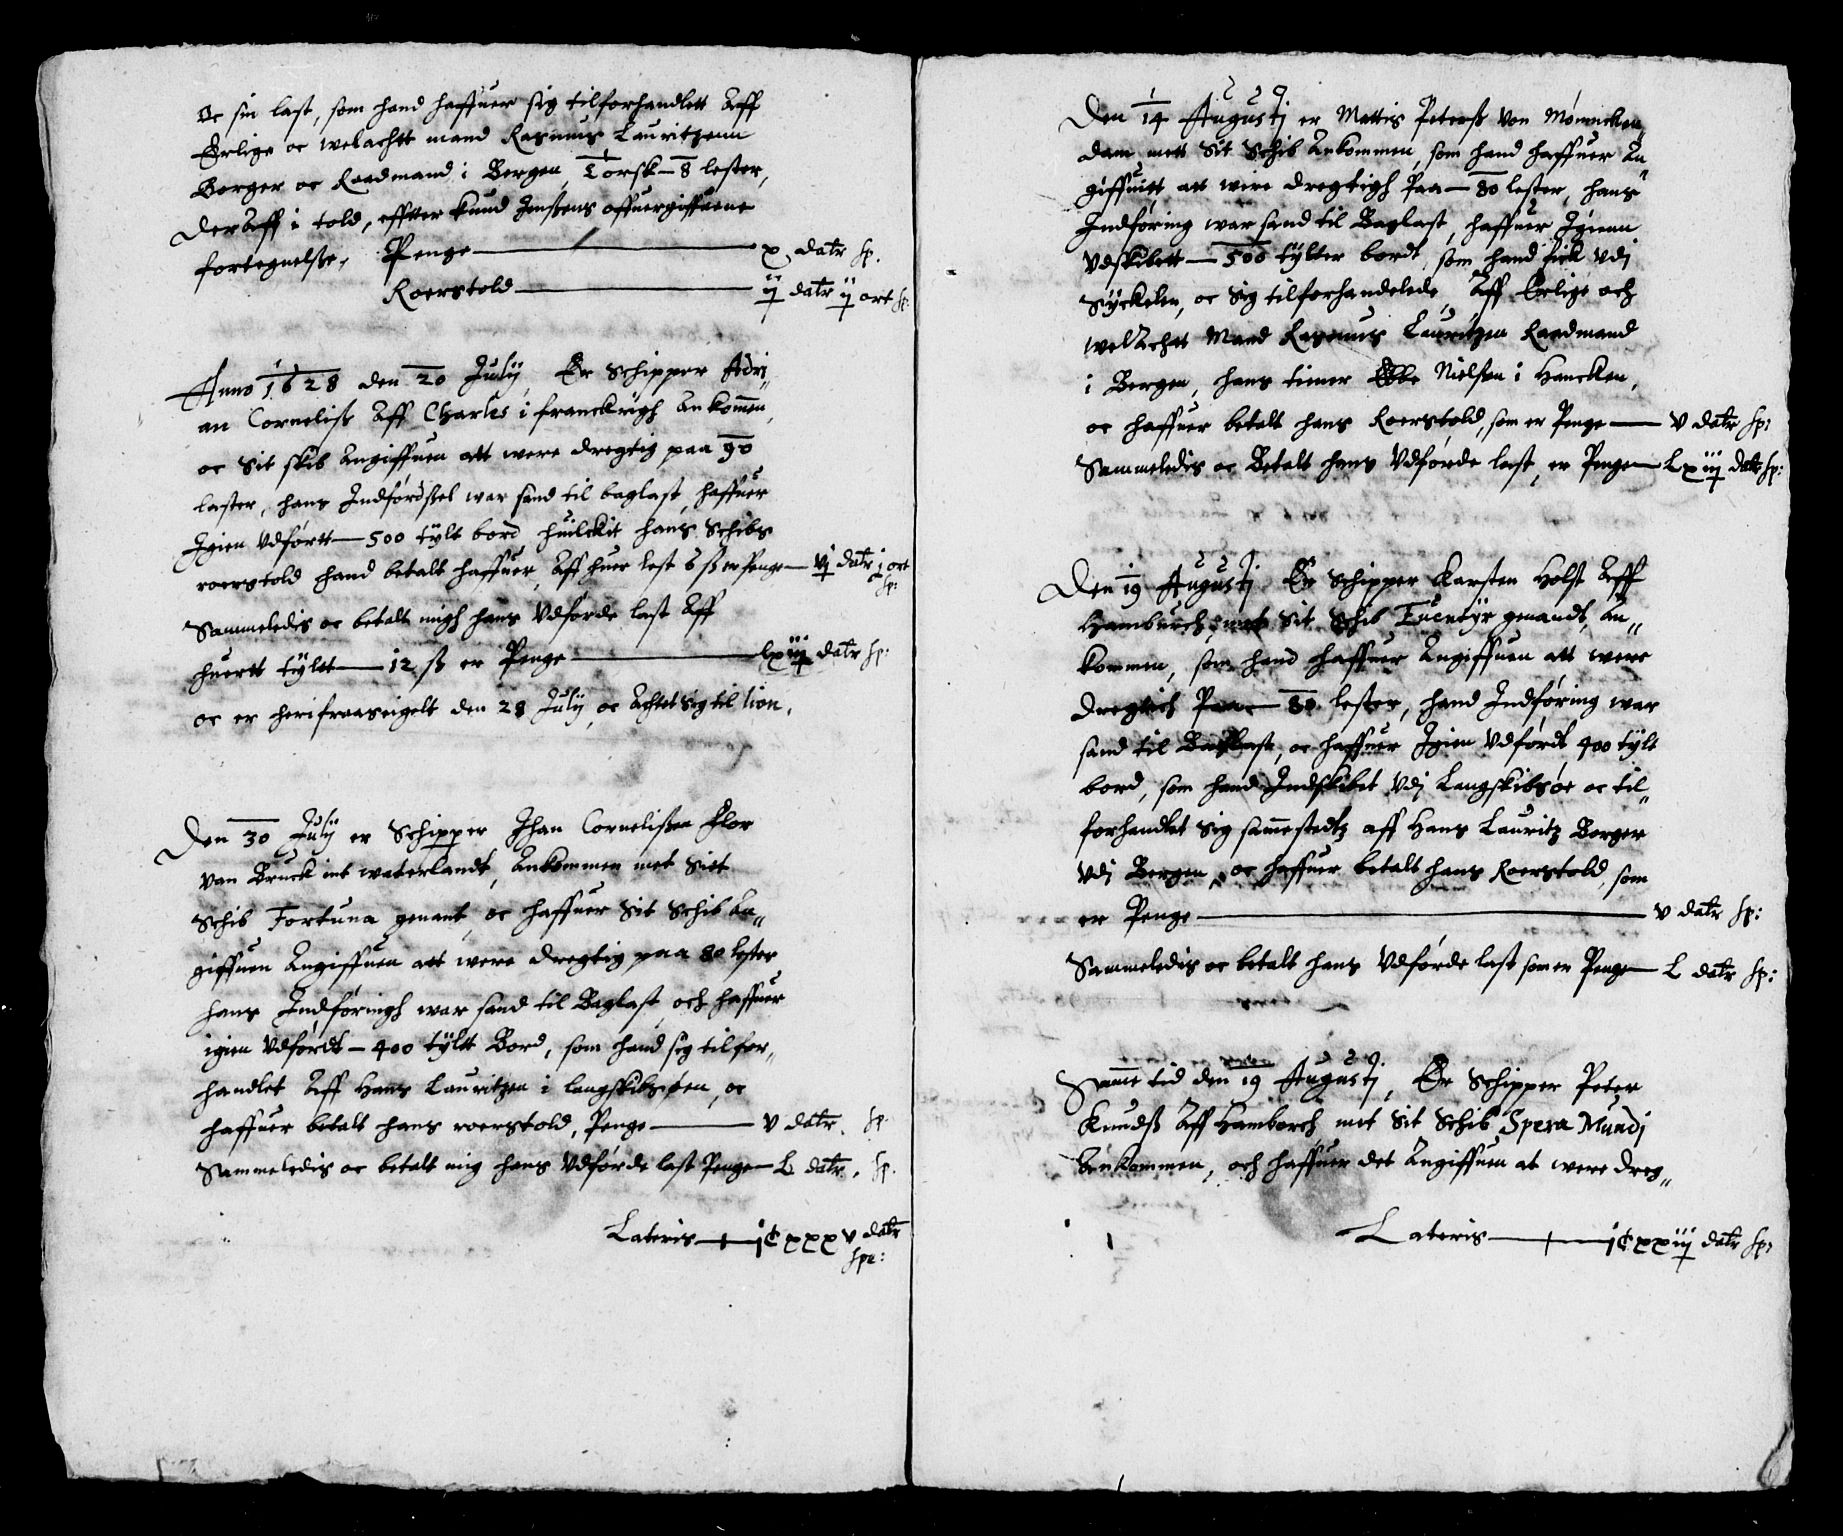 Oc sin last, som hand haffuer sig tilforhandlett Aff
Erlige oc welachtt mand Rasmus Lauritzenn
Borger oc Raadmand i Bergen, Torsk – 8 lester,
der Aff i told, effter Knud Jenssens offuergiffuene
fortegnelsse, Penge — x datr sp.
Roerstold — iij datr ij ort sp:
Anno 1628 den 20 Julij, Er Schipper Adri„
an Corneliss Aff Charles i franckrigh Ankommen,
oc Sit skib Angiffuen att were dregtig paa 90
laster, hans Indførdssel war sand til baglast, haffuer
Igien Udførtt — 500 tylt bord huilckit hans Schibs
roerstold hand betalt haffuer, Aff huer lest 6 ß er Penge — vj datr j ort
sp:
Sammeledis oc betalt migh hans Udførde last Aff
huertt tyltt — 12 ß er Penge — Lxiij datr sp:
oc er herifraa seigelt den 28 Julij, oc Achtet Sig til lion.
Den 30 Julij er Schipper Jhan Cornelissen Flor
van Bruck int waterlandt, Ankommen met Sitt
Schib Fortuna genant, oc haffuer Sit Schib An„
giffuen Angiffuen att were dregtig paa 80 lester
hans Indføringh war sand til Baglast, och haffuer
igien Udførdt – 400 tyltt Bord, som hand sig tilfor„
handlet Aff Hans Lauritzen i langskibsøen, oc
haffuer betalt hans roerstold, Penge — v datr. sp.
Sammeledis oc betalt mig hans Udførde last Penge — L datr. sp.
Lateris — jCxxxv datr
spe:
Den 14 Augustj er Mattis Peterss von Monnicken„
dam mett Sit Schib Ankommen, som hand haffuer An„
giffuitt, att wire dregtigh Paa — 80 lester, hans
Indføring war sand til Baglast, haffuer Igienn
Udskibett — 500 tylter bordt, som hand fick Udj
Syckelen, oc Sig tilforhandelede, Aff Erlige och
welAchtt Mand Rasmus Lauritzen Raadmand
i Bergen, hans tiener Ebbe Nielsen i Hancken,
oc haffuer betalt hans Roerstold, som er Penge — v datr sp:
Sammeledis oc Betalt hans Udførde last, er Penge — Lxiij datr sp:
Den 19 Augustj Er Schipper Karsten Holst Aff
Hamburch, met Sit Schib Euentyr genandt, An„
kommen, som hand haffuer Angiffuen att were
dregtich Paa — 80 lester, hand Indføring war
sand til Baglast, oc haffuer Igien Udførdt 400 tylt
bord, som hand Indskibet Udj Langskibsøe oc til„
forhandlet Sig sammestedtz aff Hans Lauritz Borger
Udj Bergen, oc haffuer betalt hans Roerstold, som
er Penge — v datr sp:
Sammeledis oc betalt hans Udførde last som er Penge — L datr sp:
Samme tid den 19 Augustj, Er Schipper Peter
Knudss Aff Hamborch met Sit Schib Spera Mundj
Ankommen, och haffuer det Angiffuen at were dreg„
Lateris — jCxxiij datr sp: